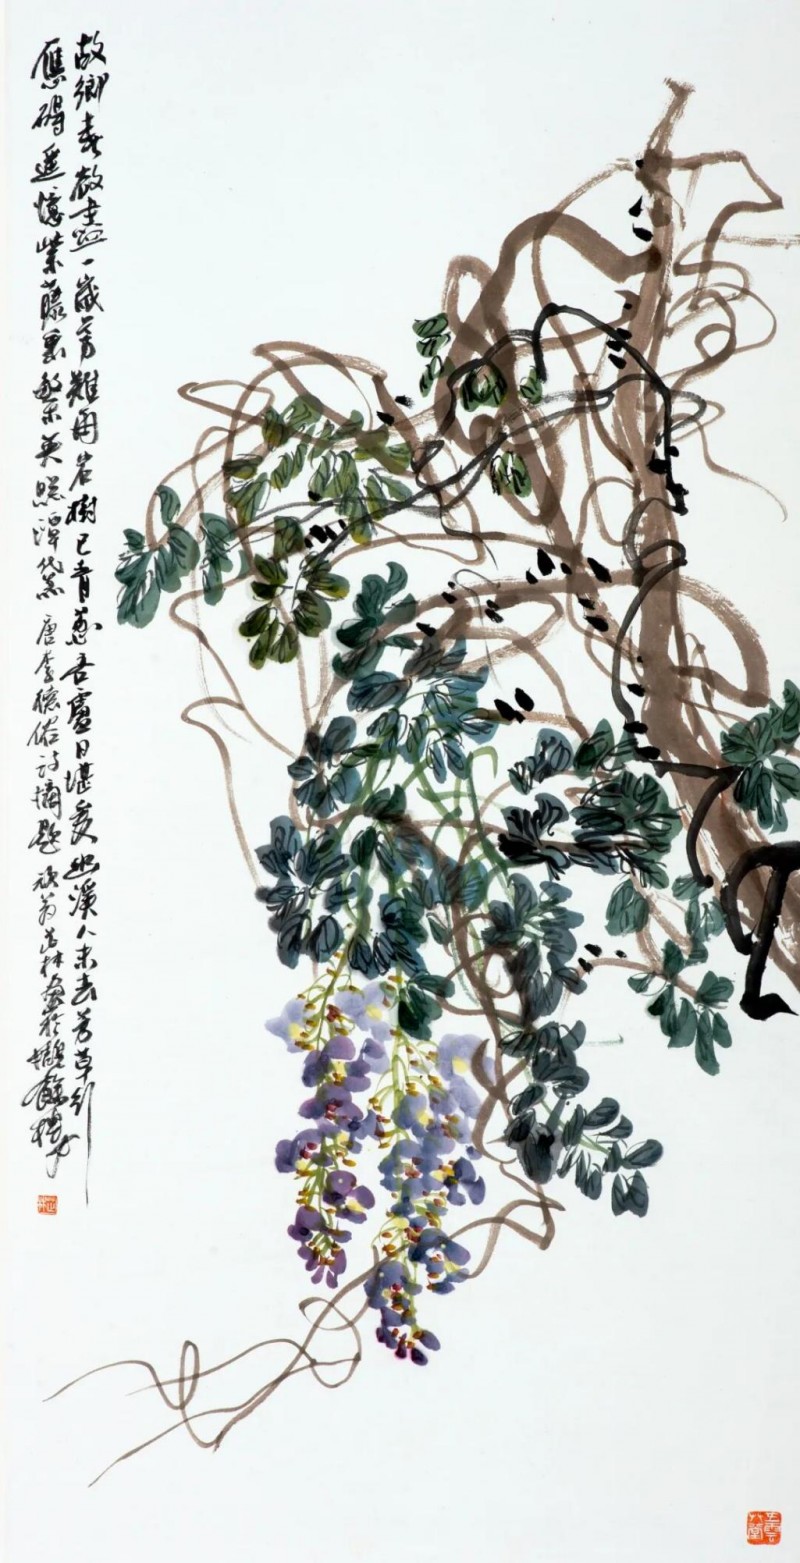 故鄉春欲盡一歲芳難再岩樹已青蔥吾廬日堪愛幽溪人未去芳草行
應碍遥憶紫藤垂繁英照潭黛 唐李德裕詩摘題 翁 林畫於 餘樓